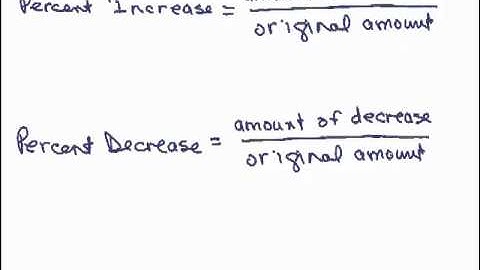 Percent Increase =
original amount
amount of decrease
Percent Decrease =
original amount